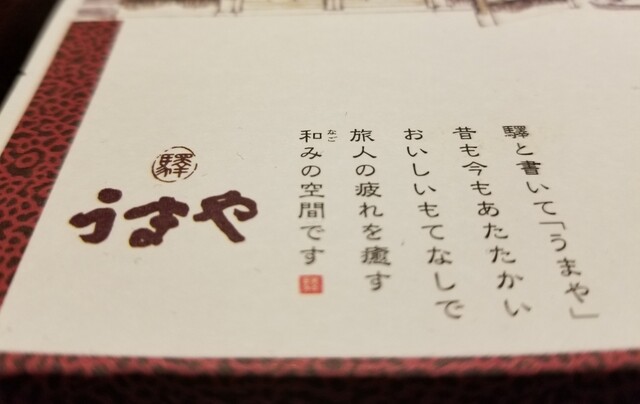 驛と書いて「うまや」
昔も今もあたたかい
おいしいもてなしで
旅人の疲れを癒す
和みの空間です
なご
驛
うまや